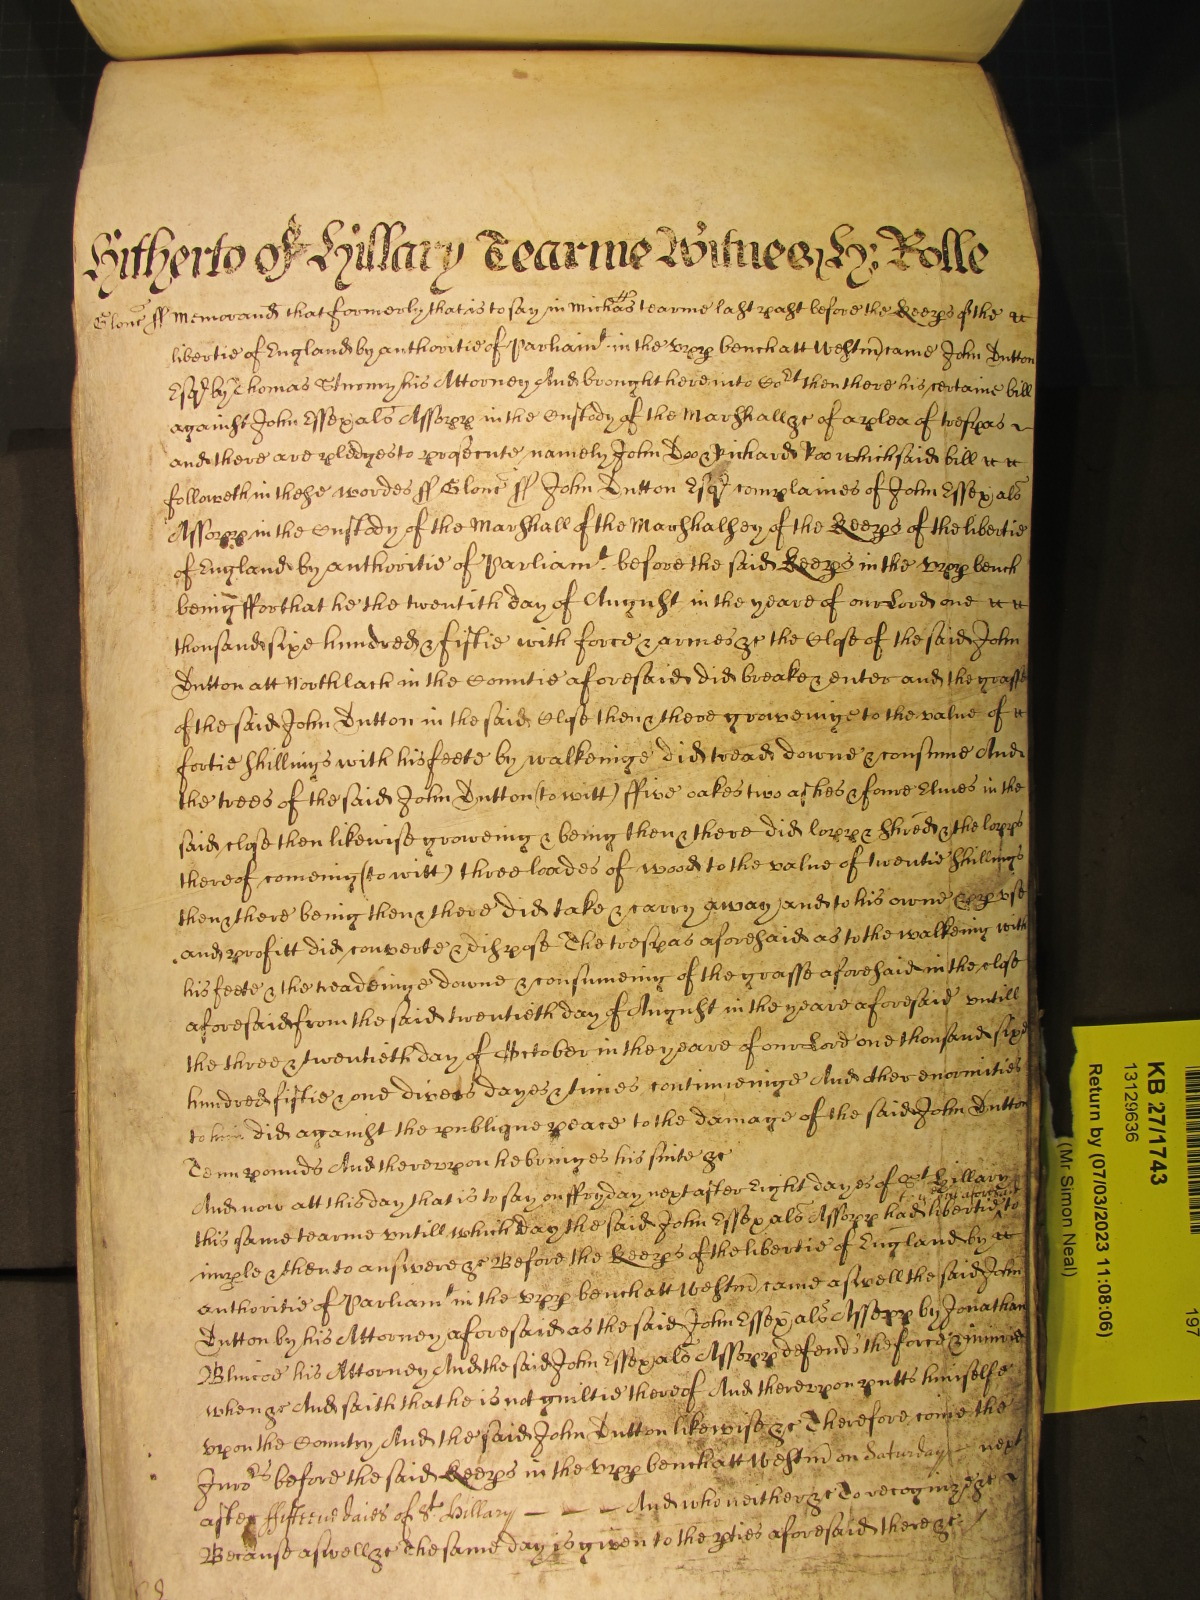 Hitherto of Hillary Tearme Witnes H: Rolle
Glouc ss Memorand that formerly that is to say in Michas tearme last past before the Keeps of the
libertie of England by authoritie of Parliamt in the upp bench att Westm came John Dutton
Esqr by Thomas his Attorney And brought here into Cort then there his certaine bill
against John Essex als Assopp in the Custody of the Marshall &c of a plea of trespas
and there are pledges to prosecute namely John Doo & Richard Roo which said bill
followeth in these wordes ss Glouc ss John Dutton Esqr complaines of John Essex als
Assopp in the Custody of the Marshall of the Marshalsey of the Keeps of the libertie
of England by authoritie of Parliamt before the said Keeps in the upp bench
being ffor that he the twentith day of August in the yeare of our Lord one
thousand sixe hundred & fiftie with force & armes &c the Close of the said John
Dutton att Northlach in the Countie aforesaid did breake & enter and the grasse
of the said John Dutton in the said Close then & there groweinge to the value of
fortie shillings with his feete by walkeinge did tread downe & consume And
the trees of the said John Dutton (to witt) ffive oakes two ashes & foure Elmes in the
said close then likewise groweing & being then & there did lopp & shred & the lopps
thereof comeing (to witt) three loades of wood to the value of twentie shillings
then & there being then & there did take & carry away and to his owne pp use
and profitt did converte & dispose The trespas aforesaid as to the walkeing with
his feete & the treadeinge downe & consumeing of the grasse aforesaid in the close
aforesaid from the said twentieth day of August in the yeare aforesaid untill
the three & twentieth day of October in the yeare of our Lord one thousand sixe
hundred fiftie & one divers dayes & times continueinge And other enormities
to him did against the publique peace to the damage of the said John Dutton
Tenn pounds And thereupon he bringes his suite &c
And now att this day that is to say on ffryday next after Eight dayes of St Hillary
this same tearme untill which day the said John Essex als Assopp had libertie to
imple & then to answere &c Before the Keeps of the libertie of England by
authoritie of Parliamt in the upp bench att Westm came aswell the said John
Dutton by his Attorney aforesaid as the said John Essex als Assopp by Jonathan
Blincoe his Attorney And the said John Essex als Assopp defends the force & iniurie
when &c And saith that he is not guiltie thereof And thereupon putts himselfe
upon the Country And the said John Dutton likewise &c Therefore come the
Jurors before the said Keeps in the upp bench att Westm on Saturday next
after ffifteene daies of St Hillary And who neither &c To recognize &c
Because aswell &c The same day is given to the pties aforesaid there &c
KB 27/1743
13129636
Return by (07/03/2023 11:08:06)
(Mr Simon Neal)
197